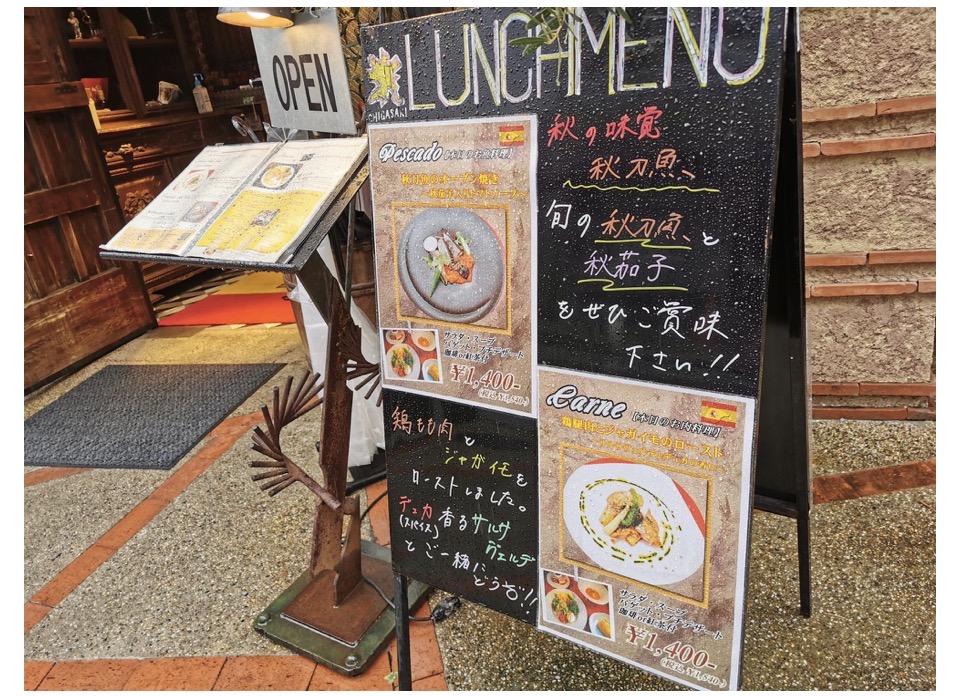 OPEN
LUNCH MENU
CHIGASAKI
Pescado【本日のお魚料理】
秋刀魚のオーブン焼き
サラダ・スープ
バゲット・プチデザート
珈琲or紅茶付
¥1,400-
(税込 ¥1,540-)
秋の味覚
秋刀魚、
旬の秋刀魚、と
秋茄子
をぜひご賞味
下さい!!
鶏もも肉と
ジャガイモを
ローストしました。
デュカ
(スパイス)
香るサルサ
ヴェルデ
とご一緒に
どうぞ!!
Carne【本日のお肉料理】
鶏腿肉とジャガイモのロースト
サラダ・スープ
バゲット・プチデザート
珈琲or紅茶付
¥1,400-
(税込 ¥1,540-)